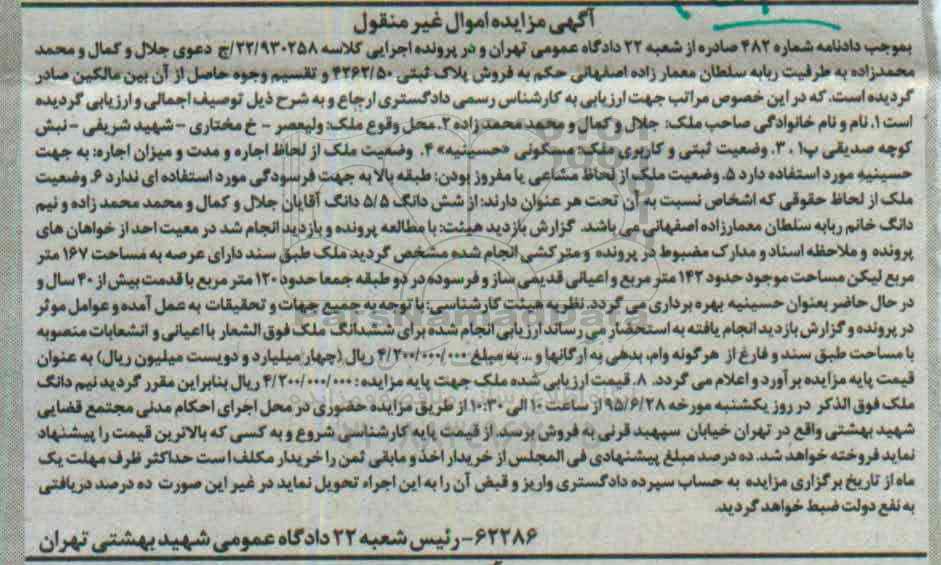 آگهی مزایده اموال غیر منقول
بموجب دادنامه شماره ۴۸۲ صادره از شعبه ۲۲ دادگاه عمومی تهران و در پرونده اجرایی کلاسه ۲۲/۹۳۰۲۵۸/ج دعوی جلال و کمال و محمد
محمدزاده به طرفیت ربابه سلطان معمار زاده اصفهانی حکم به فروش پلاک ثبتی ۴۲۶۲/۵۰ و تقسیم وجوه حاصل از آن بین مالکین صادر
گردیده است. که در این خصوص مراتب جهت ارزیابی به کارشناس رسمی دادگستری ارجاع و به شرح ذیل توصیف اجمالی و ارزیابی گردیده
است ۱. نام و نام خانوادگی صاحب ملک: جلال و کمال و محمد محمد زاده ۲. محل وقوع ملک: ولیعصر - خ مختاری - شهید شریفی - نبش
کوچه صدیقی پ۱ . ۳. وضعیت ثبتی و کاربری ملک: مسکونی «حسینیه» ۴. وضعیت ملک از لحاظ اجاره و مدت و میزان اجاره: به جهت
حسینیه مورد استفاده دارد ۵. وضعیت ملک از لحاظ مشاعی یا مفروز بودن: طبقه بالا به جهت فرسودگی مورد استفاده ای ندارد ۶. وضعیت
ملک از لحاظ حقوقی که اشخاص نسبت به آن تحت هر عنوان دارند: از شش دانگ ۵/۵ دانگ آقایان جلال و کمال و محمد محمد زاده و نیم
دانگ خانم ربابه سلطان معمارزاده اصفهانی می باشد. گزارش بازدید هیئت: با مطالعه پرونده و بازدید انجام شد در معیت احد از خواهان های
پرونده و ملاحظه اسناد و مدارک مضبوط در پرونده و مترکشی انجام شده مشخص گردید ملک طبق سند دارای عرصه به مساحت ۱۶۷ متر
مربع لیکن مساحت موجود حدود ۱۴۳ متر مربع و اعیانی قدیمی ساز و فرسوده در دو طبقه جمعا حدود ۱۲۰ متر مربع با قدمت بیش از ۴۰ سال و
در حال حاضر بعنوان حسینیه بهره برداری می گردد. نظریه هیئت کارشناسی: با توجه به جمیع جهات و تحقیقات به عمل آمده و عوامل موثر
در پرونده و گزارش بازدید انجام یافته به استحضار می رساند ارزیابی انجام شده برای ششدانگ ملک فوق الشعار با اعیانی و انشعابات منصوبه
با مساحت طبق سند و فارغ از هرگونه وام، بدهی به ارگانها و ... به مبلغ ۴/۲۰۰/۰۰۰/۰۰۰ ریال (چهار میلیارد و دویست میلیون ریال) به عنوان
قیمت پایه مزایده برآورد و اعلام می گردد. ۸. قیمت ارزیابی شده ملک جهت پایه مزایده: ۴/۲۰۰/۰۰۰/۰۰۰ ریال بنابراین مقرر گردید نیم دانگ
ملک فوق الذکر در روز یکشنبه مورخه ۹۵/۶/۲۸ از ساعت ۱۰ الی ۱۰:۳۰ از طریق مزایده حضوری در محل اجرای احکام مدنی مجتمع قضایی
شهید بهشتی واقع در تهران خیابان سپهبد قرنی به فروش برسد. از قیمت پایه کارشناسی شروع و به کسی که بالاترین قیمت را پیشنهاد
نماید فروخته خواهد شد. ده درصد مبلغ پیشنهادی فی المجلس از خریدار اخذ و مابقی ثمن را خریدار مکلف است حداکثر ظرف مهلت یک
ماه از تاریخ برگزاری مزایده به حساب سپرده دادگستری واریز و قبض آن را به این اجراء تحویل نماید در غیر این صورت ده درصد دریافتی
به نفع دولت ضبط خواهد گردید.
۶۲۲۸۶- رئیس شعبه ۲۲ دادگاه عمومی شهید بهشتی تهران
ParsNamadData